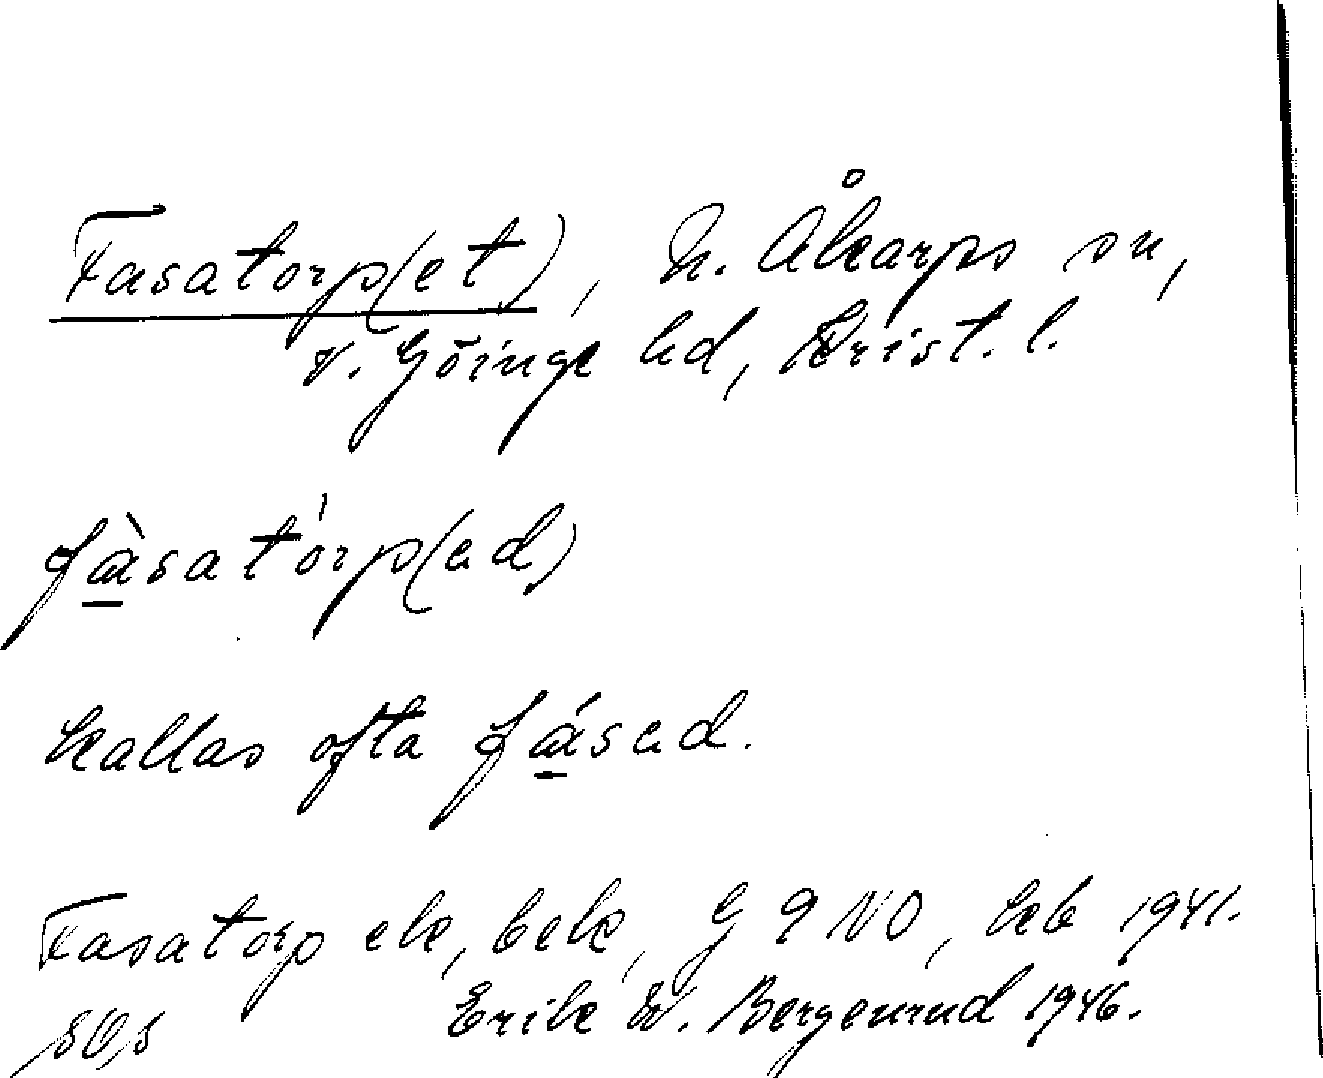 Fasatorp(et), N. Åkarps sn,
V. Göinge hd, Krist. l.
fàsatórp(ed)
kallas ofta fásed.
Fasatorp ek, bek, G 9 NO, kb 1941.
Erik W. Bergenrud 1946.